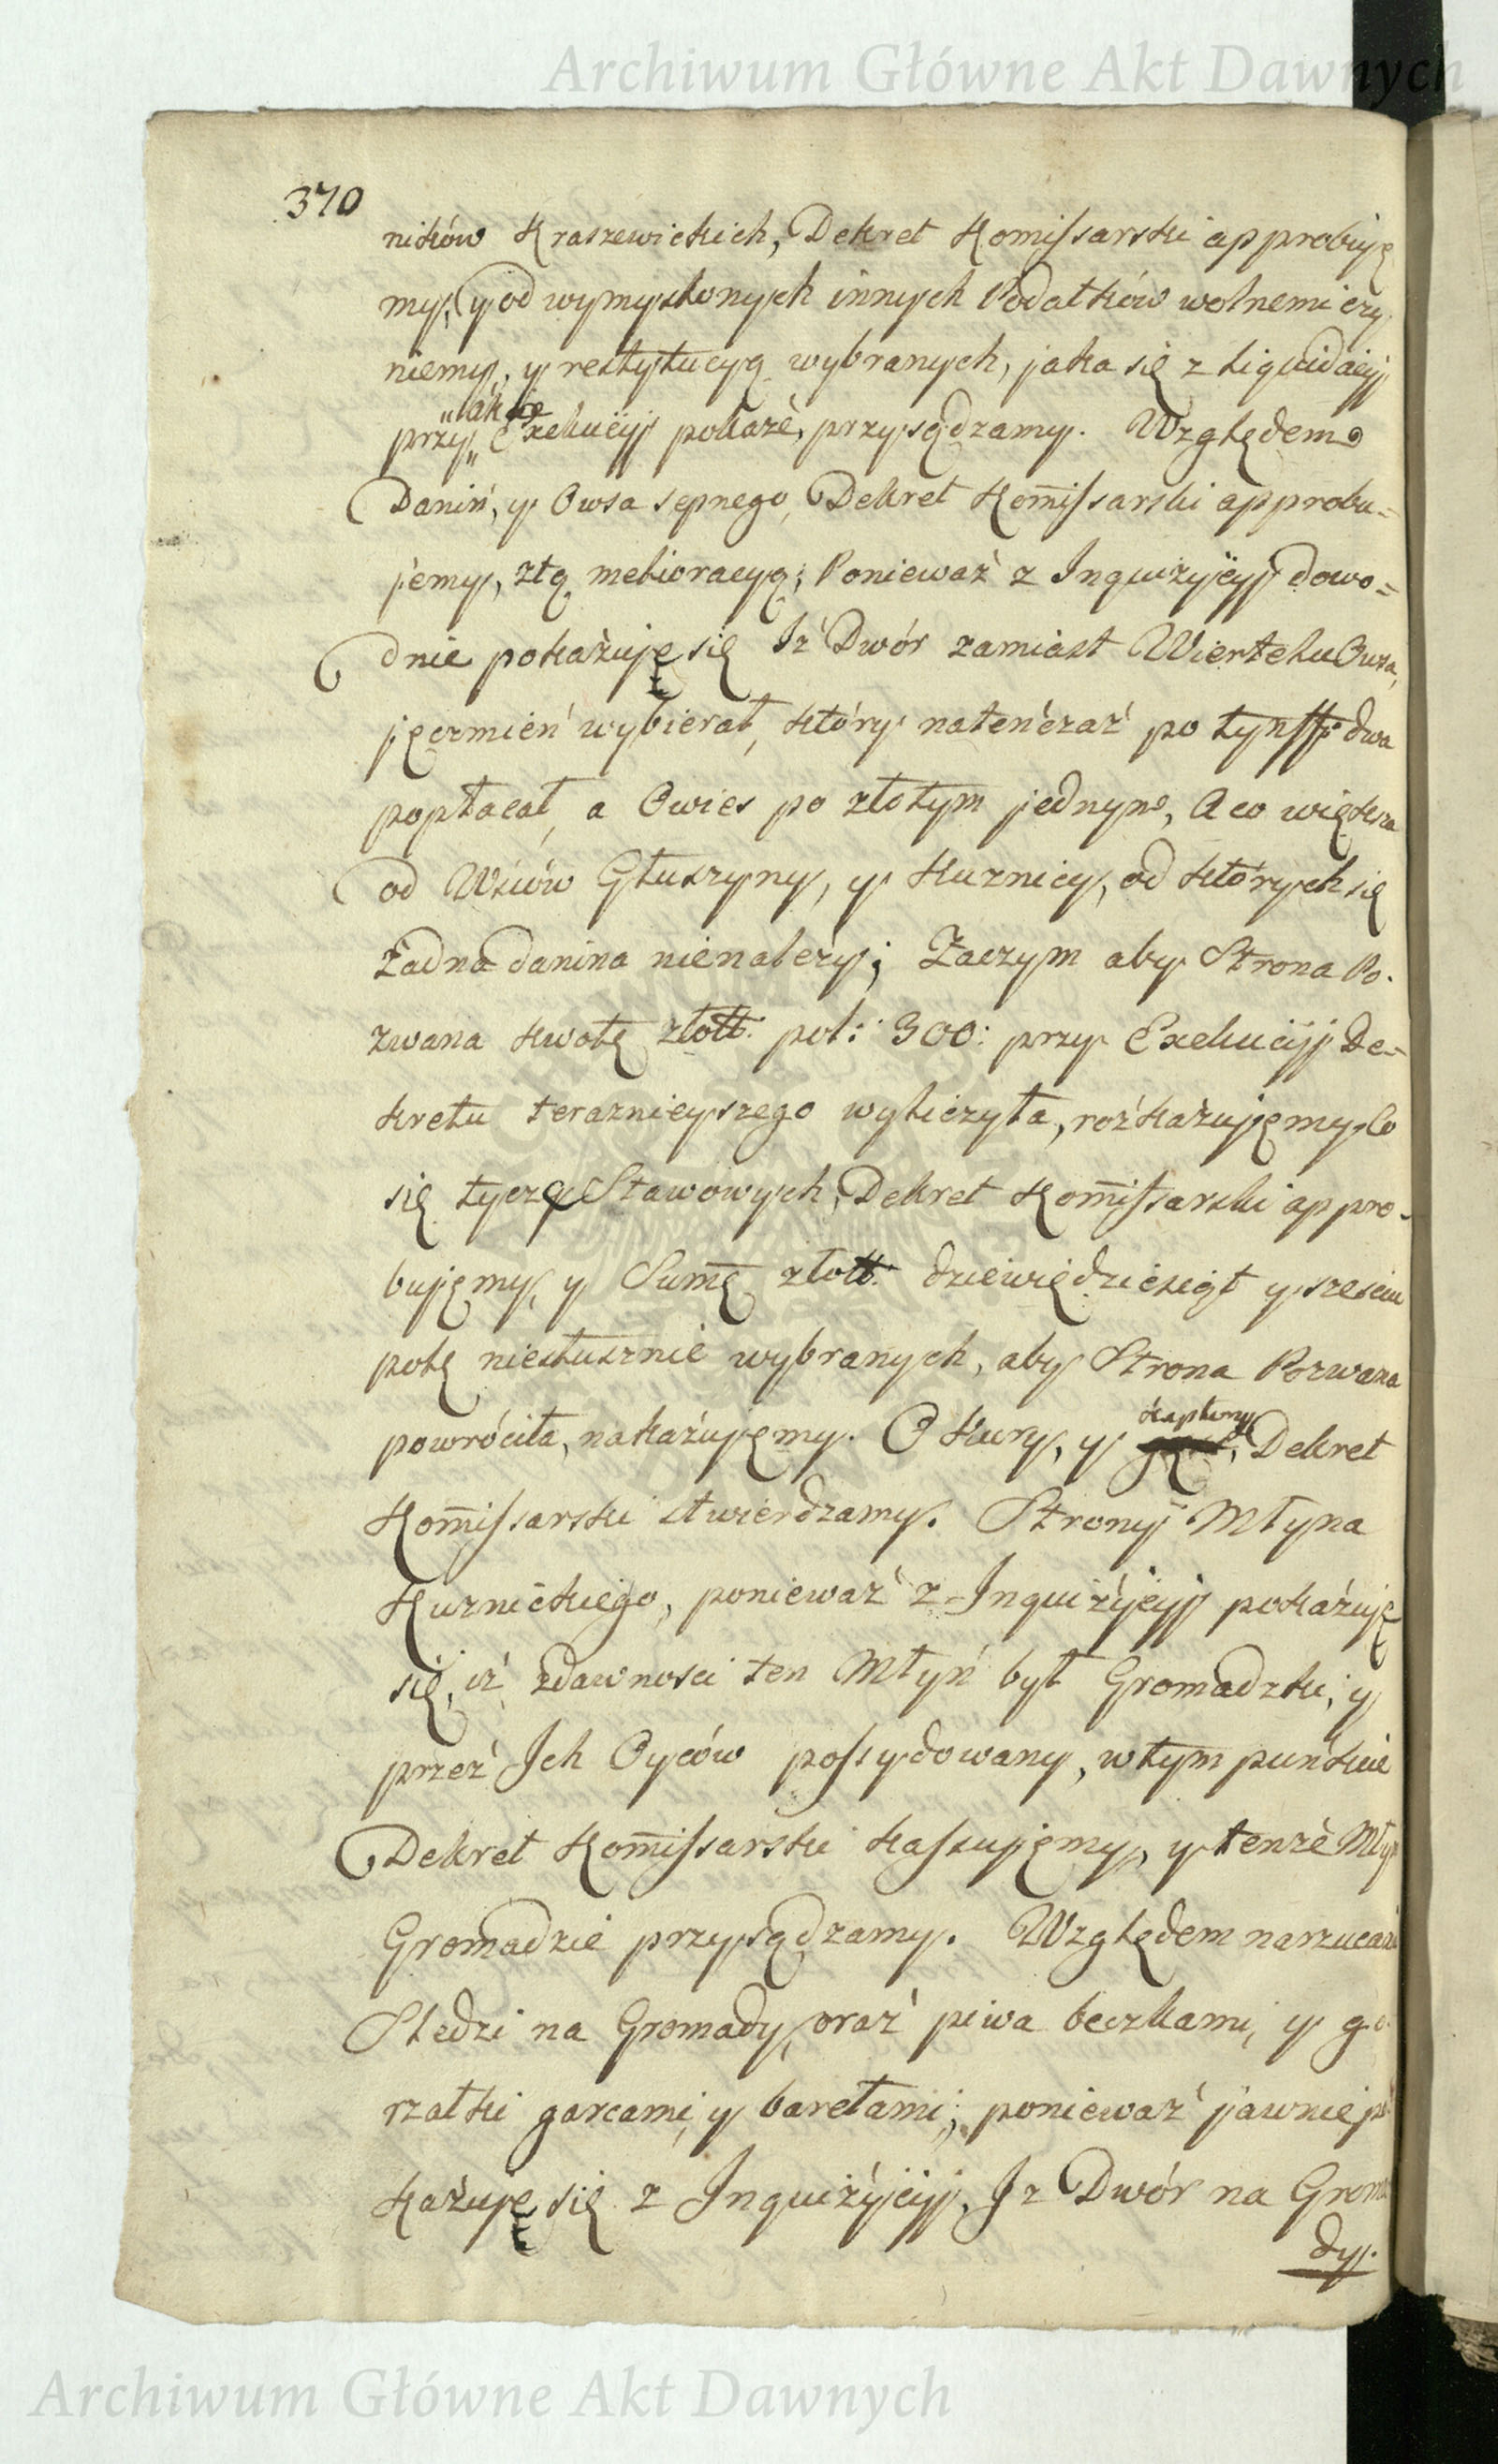 Archiwum Główne Akt Dawnych
370
ników Kraszewickich, Dekret Komissarski approbuję
my, y od wymyslonych innych Podatków wolnemi czy
niemy, y restytucyą wybranych, jaka się z Liquidacyj
przy Exekucyj pokaże, przysądzamy. Względem
Daniń, y Owsa sepnego, Dekret Kom̄issarski approbu=
jemy, ztą melioracyą; Ponieważ z Inquizycyj dowo=
dnie pokażuję się Iż Dwór zamiast Wiertelu Owsa,
jęczmień wybierał, który natenczaż po tynff: dwa
popłacał, a Owies po złotym jednym, A co większa
od Wsiów Głuszyny, y Kuznicy, od których się
żadna danina nienależy; Zaczym aby Strona Po-
zwana kwotę złott: pol: 300: przy Exekucyj De=
kretu teraznieyszego wyliczyła, rozkażujęmy. Co
się tyczę Stawowych, Dekret Kom̄issarski appro-
bujęmy, y Sum̄ę złott: dziewiędziesiąt y sześciu
polę niesłusznie wybranych, aby Strona Pozwana
powróciła, nakażujęmy. O Kury, y kapłony, Dekret
Kom̄issarski stwierdzamy. Strony Młyna
Kuznickiego, ponieważ z Inquizycyj pokażuję
się, iż zdawnosci ten Młyń był Gromadzki, y
przeż Ich Oyców possydowany, w tym punkcie
Dekret Kom̄issarski kassujęmy, y tenże Młyn
Gromadzie przysądzamy. Względem narzucani
Sledzi na Gromady, oraż piwa beczkami, y go
rzałki garcami, y barełami; ponieważ jawnie po
każuję się z Inquizycyj, Iz Dwór na Groma
dy.
Archiwum Główne Akt Dawnych